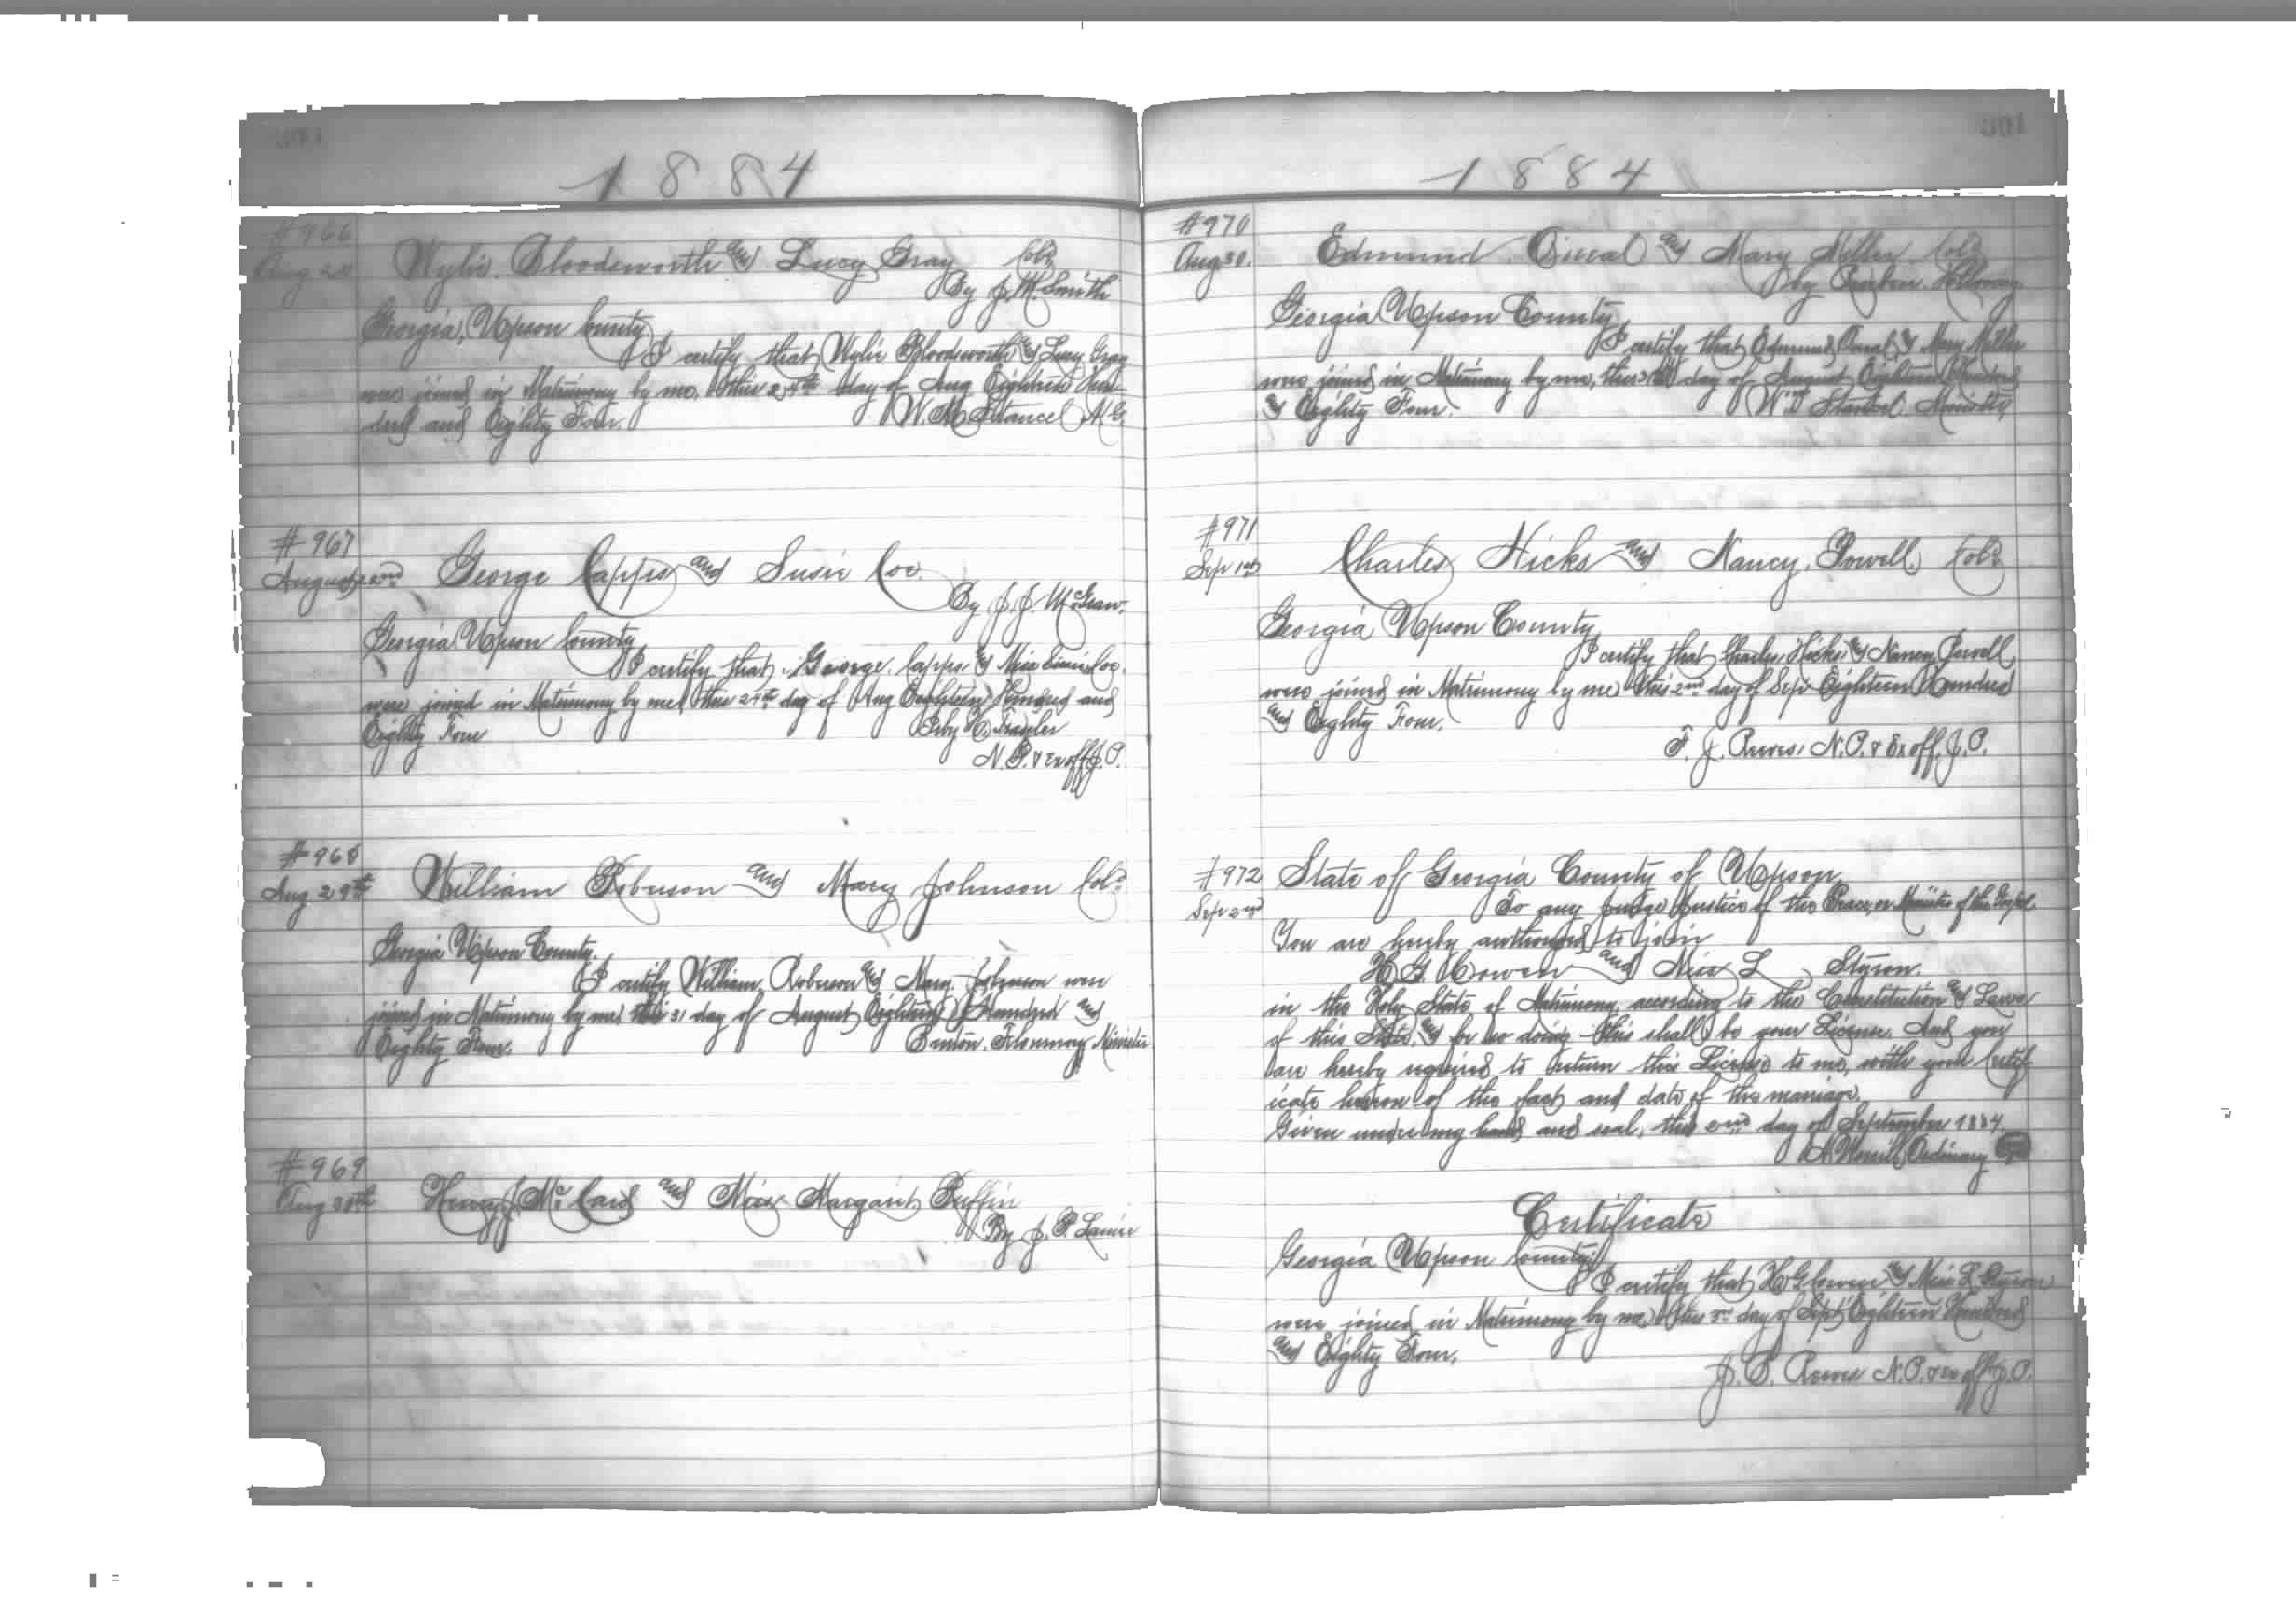 1884
#966
Aug 2
Wylie Bloodsworth and Lucy Gray Cold
By J. M. Smith
Georgia, Upson County
I certify that Wylie Bloodsworth & Lucy Gray
were joined in Matrimony by me, this 24th day of Aug Eighteen Hun-
dred and Eighty Four. W. M. Stancel M.G.
#967
August 22nd George Capps and Susie Coe.
By J. J. McGraw.
Georgia Upson County
I certify that George Capps & Miss Susie Coe.
were joined in Matrimony by me this 24th day of Aug Eighteen Hundred and
Eighty Four
N.P. & Ex off J.P.
#968
Aug 29th William Roberson and Mary Johnson Cold
Georgia Upson County.
I certify William Roberson & Mary Johnson were
joined in Matrimony by me, this 31 day of August Eighteen Hundred and
Eighty Four. Flournoy Minister
#969
Aug 30th Henry J. McCard and Miss Margaret Ruffin
By J. P. Lanier
1884
301
#970
Aug 30. Edmund and Mary Miller Cold
by Reuben Holloway
Georgia Upson County
I certify that Edmund & Mary Miller
were joined in Matrimony by me, this day of August Eighteen Hundred
& Eighty Four. Minister
#971
Sep 1st Charles Hicks and Nancy Powell Cold
Georgia Upson County
I certify that Charles Hicks & Nancy Powell
were joined in Matrimony by me this 2nd day of Sept Eighteen Hundred
and Eighty Four.
F. J. Reeves N.P. & Ex off. J.P.
#972 State of Georgia County of Upson
Sep 2nd To any Judge Justice of the Peace, or Minister of the Gospel.
You are hereby authorized to join
H G Cowen and Miss L Styron.
in the Holy State of Matrimony, according to the Constitution & Laws
of this State, & for so doing this shall be your License. And you
are hereby required to return this License to me, with your Certif-
icate hereon of the fact and date of the marriage.
Given under my hand and seal, this 2nd day of September 1884.
Worrill Ordinary
Certificate
Georgia Upson County
I certify that H G Cowen & Miss L Styron
were joined in Matrimony by me, this 3rd day of Sept Eighteen Hundred
and Eighty Four.
Reeves N.P. & Ex off J.P.